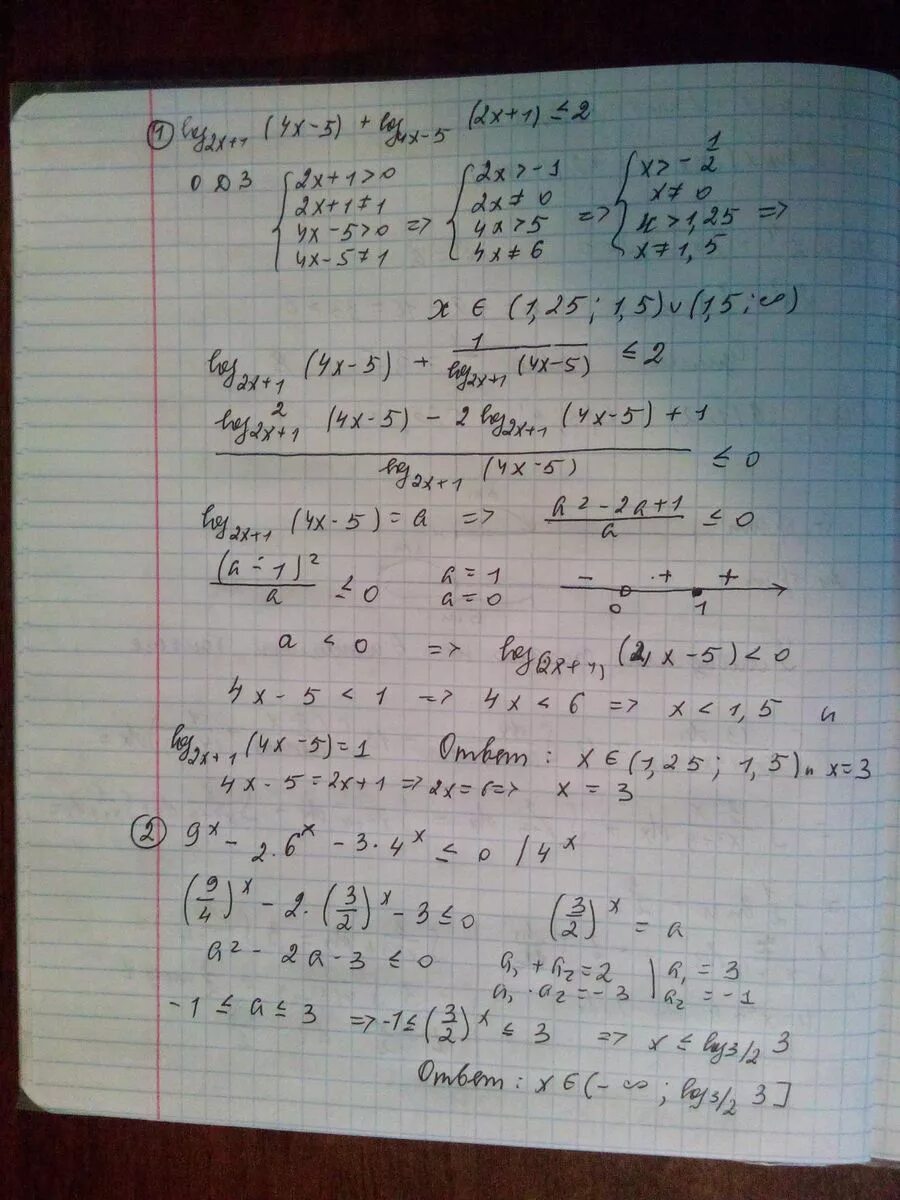 ① log₂ₓ₊₁ (4x-5) + log₄ₓ₋₅ (2x+1) ≤ 2
ОДЗ { 2x+1>0 { 2x>-1 { x>-1/2
2x+1≠1 2x≠0 x≠0
4x-5>0 => 4x>5 => x>1,25 =>
4x-5≠1 4x≠6 x≠1,5
x ∈ (1,25; 1,5)∪(1,5; ∞)
log₂ₓ₊₁ (4x-5) + 1/(log₂ₓ₊₁ (4x-5)) ≤ 2
(log²₂ₓ₊₁ (4x-5) - 2 log₂ₓ₊₁ (4x-5) + 1)/(log₂ₓ₊₁ (4x-5)) ≤ 0
log₂ₓ₊₁ (4x-5) = a => (a²-2a+1)/a ≤ 0
(a-1)²/a ≤ 0 a = 1 - + +
a = 0 0 1
a < 0 => log₍₂ₓ₊₁₎ (4x-5) < 0
4x-5 < 1 => 4x < 6 => x < 1,5 и
log₂ₓ₊₁ (4x-5) = 1 Ответ: x ∈ (1,25; 1,5) и x=3
4x-5=2x+1 => 2x=6 => x = 3
② 9ˣ - 2·6ˣ - 3·4ˣ ≤ 0 /4ˣ
(9/4)ˣ - 2·(3/2)ˣ - 3 ≤ 0 (3/2)ˣ = a
a² - 2a - 3 ≤ 0 a₁ + a₂ = 2 | a₁ = 3
a₁ · a₂ = -3 | a₂ = -1
-1 ≤ a ≤ 3 => -1 ≤ (3/2)ˣ ≤ 3 => x ≤ log3/2 3
Ответ: x ∈ (-∞; log3/2 3]